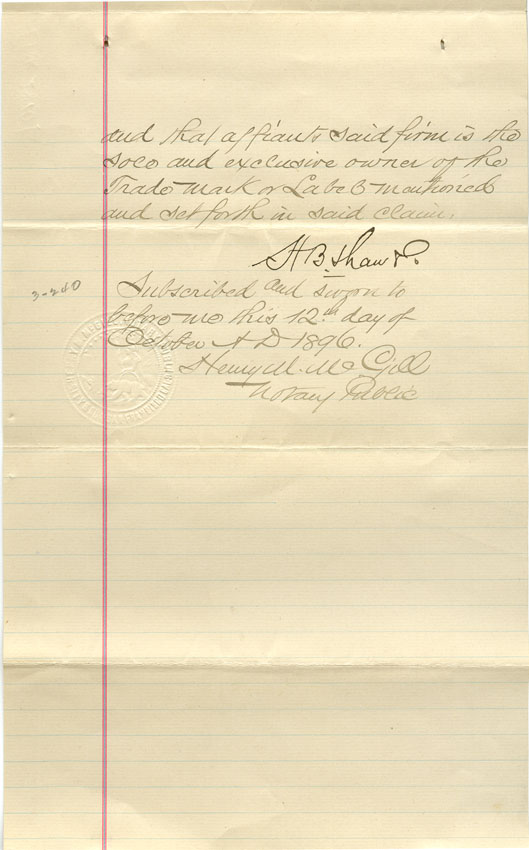 and that affiants said firm is the
sole and exclusive owner of the
Trade Mark or Label mentioned
and set forth in said claim.
H B. Shaw
3-240
Subscribed and sworn to
before me this 12th day of
October A D 1896.
Henry M. McGill
Notary Public